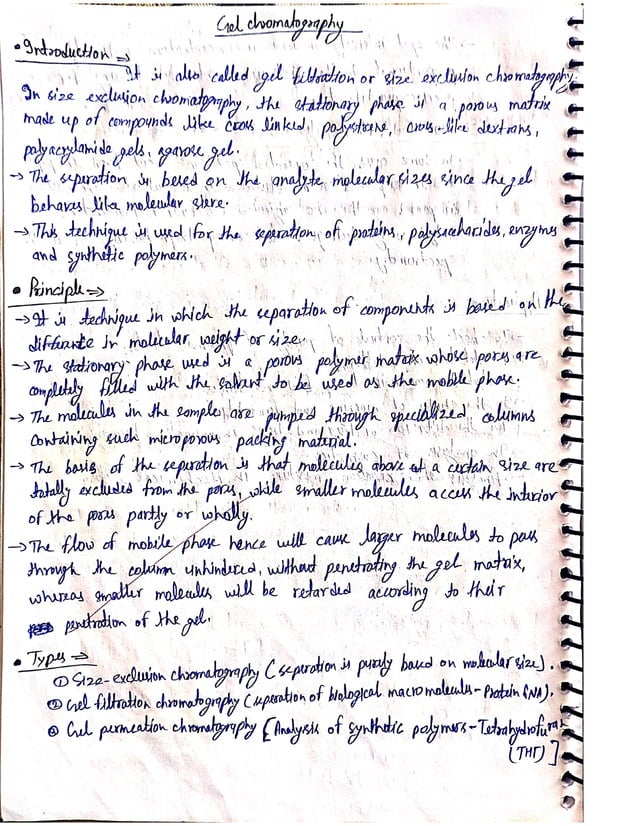 Gel chromatography
• Introduction ⇒
It is also called gel filtration or size exclusion chromatography.
In size exclusion chromatography, the stationary phase is a porous matrix
made up of compounds like cross linked, polystrene, cross-like dextrans,
polyacrylamide gels, agarose gel.
→ The seperation is besed on the analyte molecular sizes since the gel
behaves like molecular sieve.
→ This technique is used for the seperation of proteins, polysaccharides, enzymes
and synthetic polymers.
• Principle ⇒
→ It is technique in which the separation of components is based on the
difference in molecular weight or size.
→ The stationary phase used is a porous polymer matrix whose pores are
completely filled with the solvent to be used as the mobile phase.
→ The molecules in the sample are pumped through specialized columns
containing such microporous packing material.
→ The basis of the separation is that molecules above of a certain size are
totally excluded from the pores, while smaller molecules access the interior
of the pores partly or wholly.
→ The flow of mobile phase hence will cause larger molecules to pass
through the column unhindered, without penetrating the gel matrix,
whereas smaller molecules will be retarded according to their
penetration of the gel.
• Types ⇒
① Size-exclusion chromatography (seperation is purely based on molecular size).
② Gel filtration chromatography (seperation of biological macromolecules - Protein, DNA).
③ Gel permeation chromatography [Analysis of synthetic polymers - Tetrahydrofuran
(THF)]